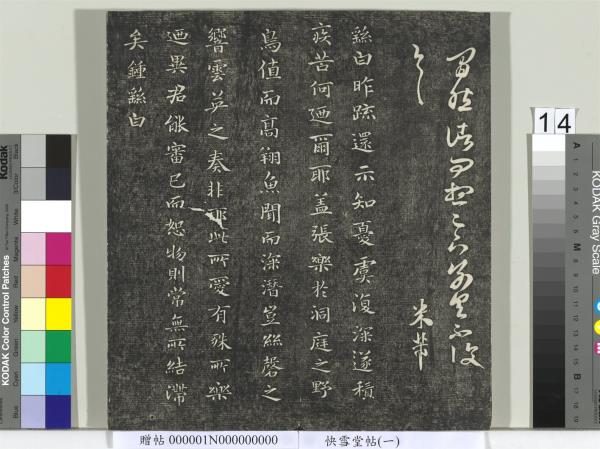 米芾
繇白昨疏還示知憂虞復深遂積
疾苦何迺爾耶蓋張樂於洞庭之野
鳥值而高翔魚聞而深潛豈絲磬之
響雲英之奏非耶此所愛有殊所樂
迺異君能審己而恕物則常無所結滯
矣鍾繇白
贈帖 000001N000000000
快雪堂帖(一)
14
KODAK Color Control Patches
Kodak
Black
3/Color
White
Magenta
Red
Yellow
Green
Cyan
Blue
KODAK Gray Scale
A 1 2 3 4 5 6 M 8 9 10 11 12 13 14 15 B 17 18 19
C
Y
M